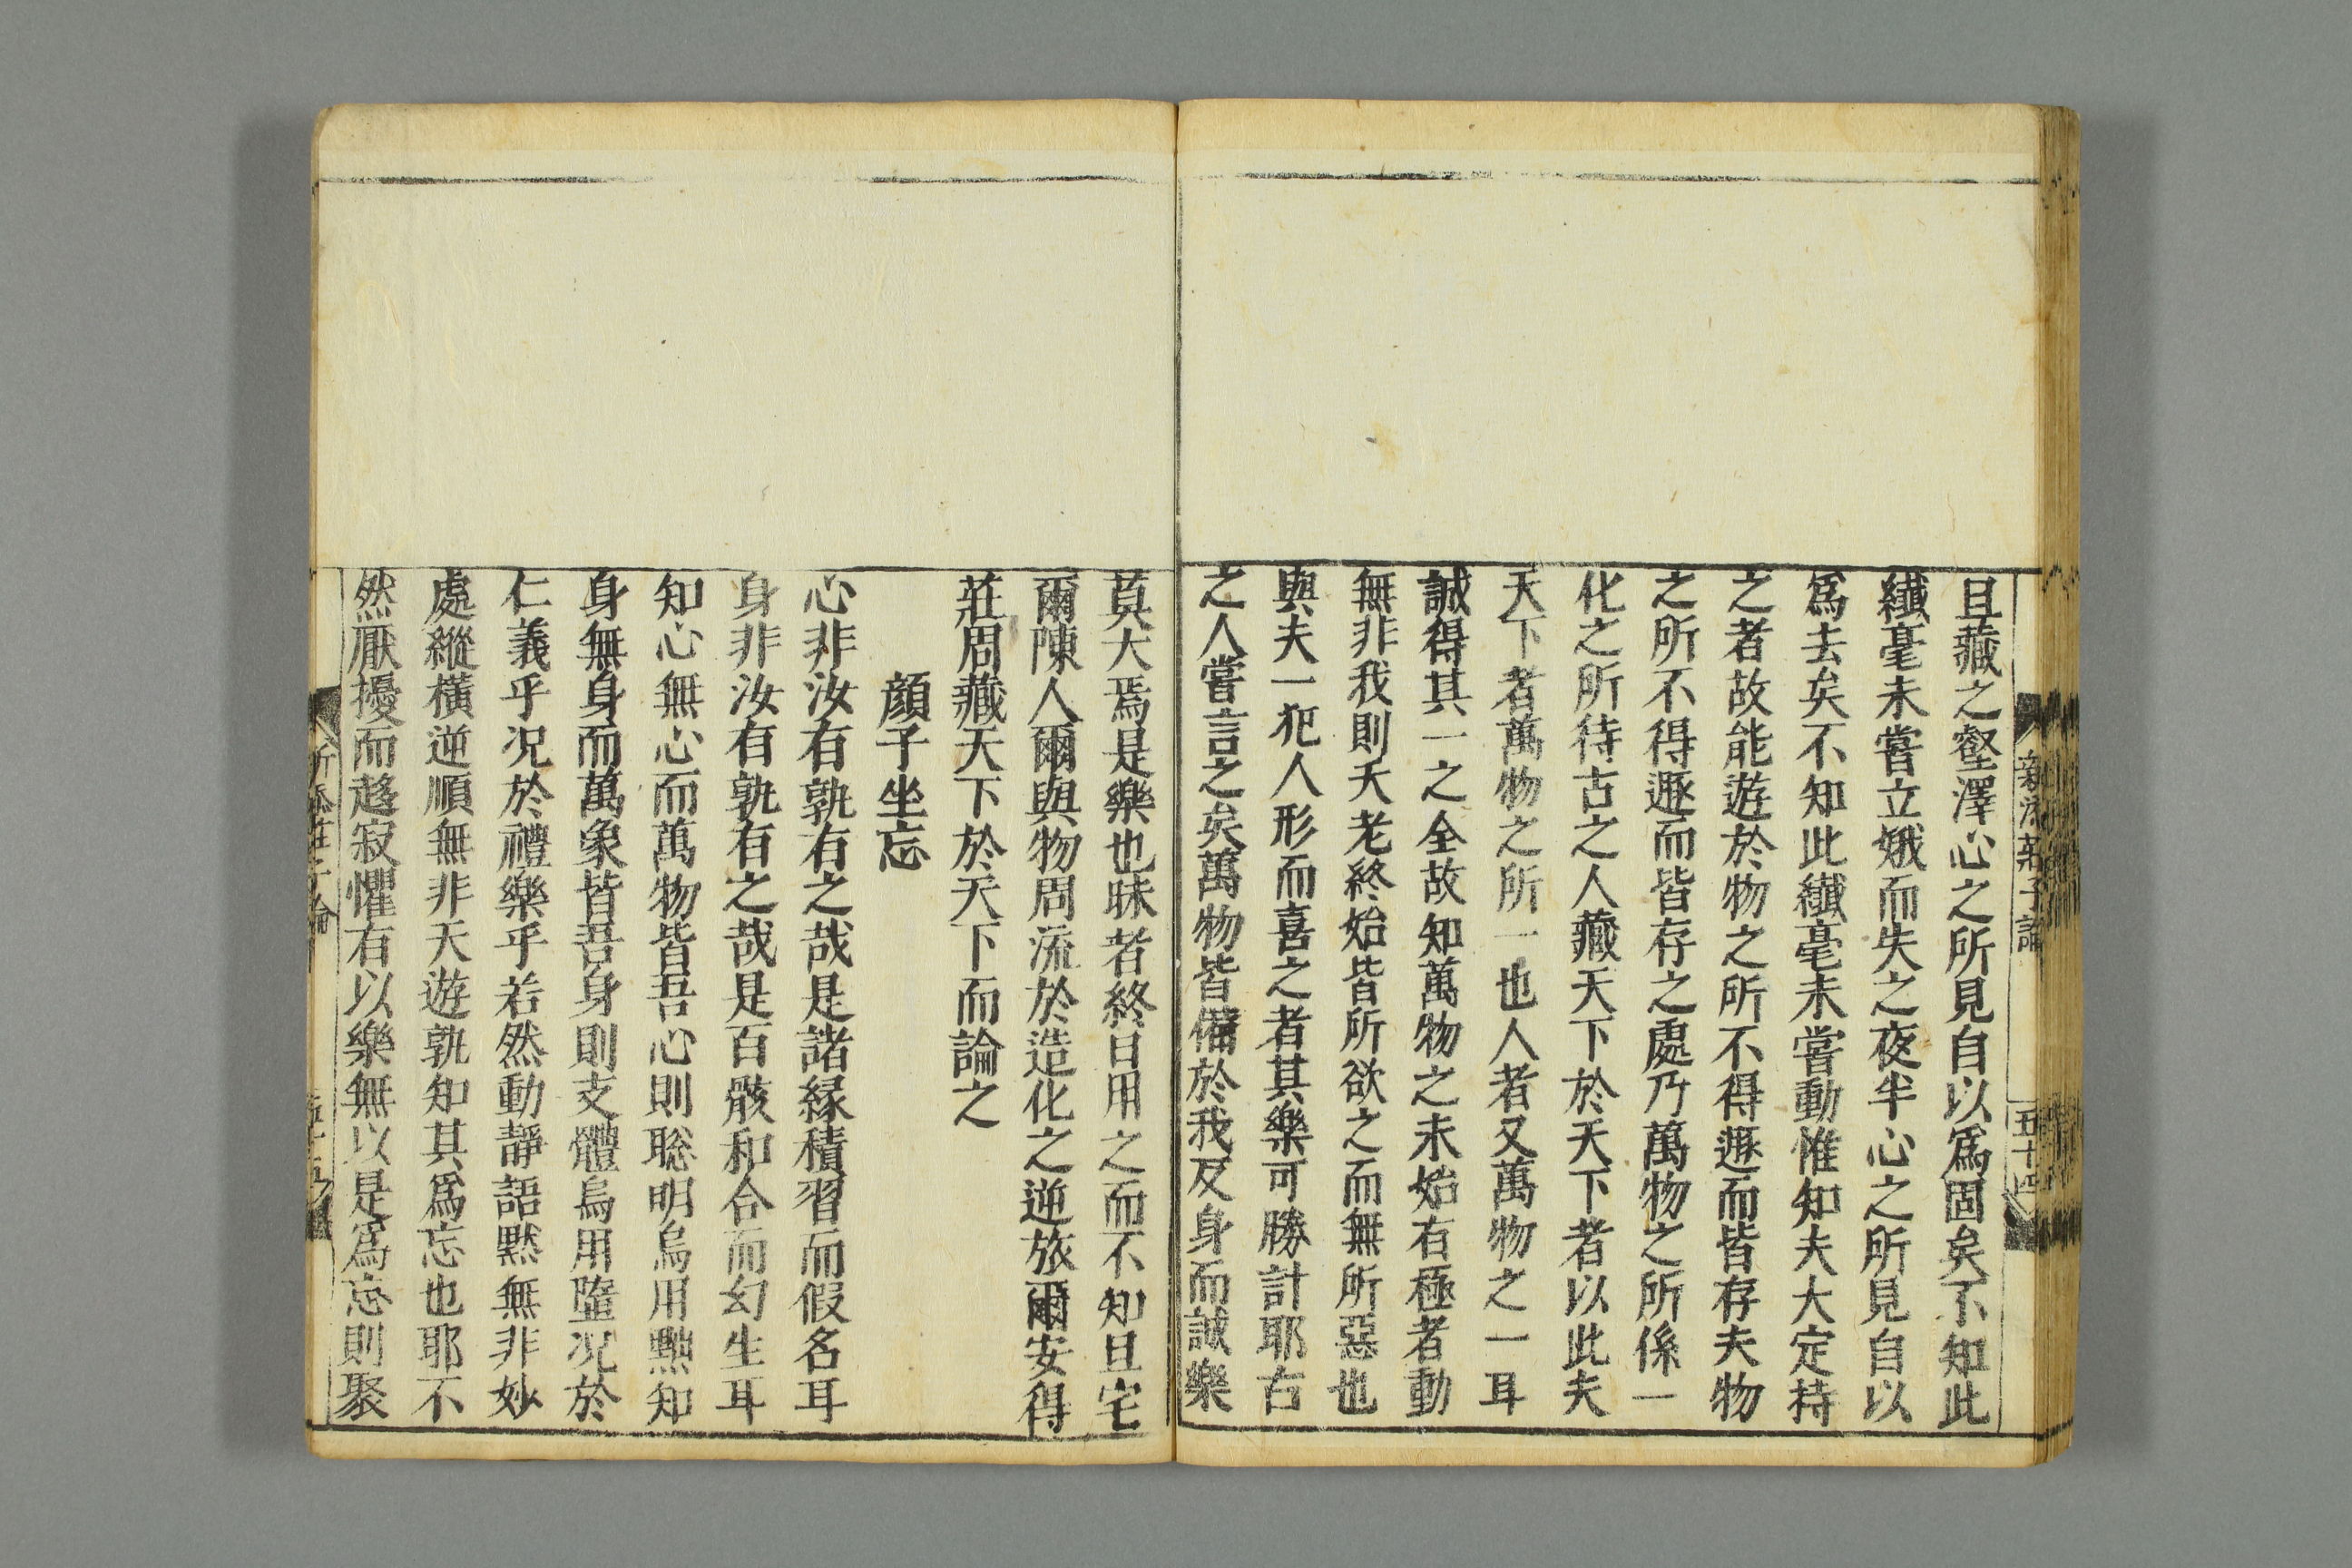 新添莊子論
五十四
且藏之壑澤心之所見自以爲固矣不知此
纎毫未嘗立娥而失之夜半心之所見自以
爲去矣不知此纎毫未嘗動惟知夫大定持
之者故能遊於物之所不得遯而皆存夫物
之所不得遯而皆存之處乃萬物之所係一
化之所待古之人藏天下於天下者以此夫
天下者萬物之所一也人者又萬物之一耳
誠得其一之全故知萬物之未始有極者動
無非我則夭老終始皆所欲之而無所惡也
與夫一犯人形而喜之者其樂可勝計耶古
之人嘗言之矣萬物皆備於我反身而誠樂
莫大焉是樂也昧者終日用之而不知且宅
爾陳人爾與物周流於造化之逆旅爾安得
莊周藏天下於天下而論之
顏子坐忘
心非汝有孰有之哉是諸緣積習而假名耳
身非汝有孰有之哉是百骸和合而幻生耳
知心無心而萬物皆吾心則聡明烏用黜知
身無身而萬象皆吾身則支體烏用墮况於
仁義乎况於禮樂乎若然動靜語黙無非妙
處縱橫逆順無非天遊孰知其爲忘也耶不
然厭擾而趍寂懼有以樂無以是爲忘則聚